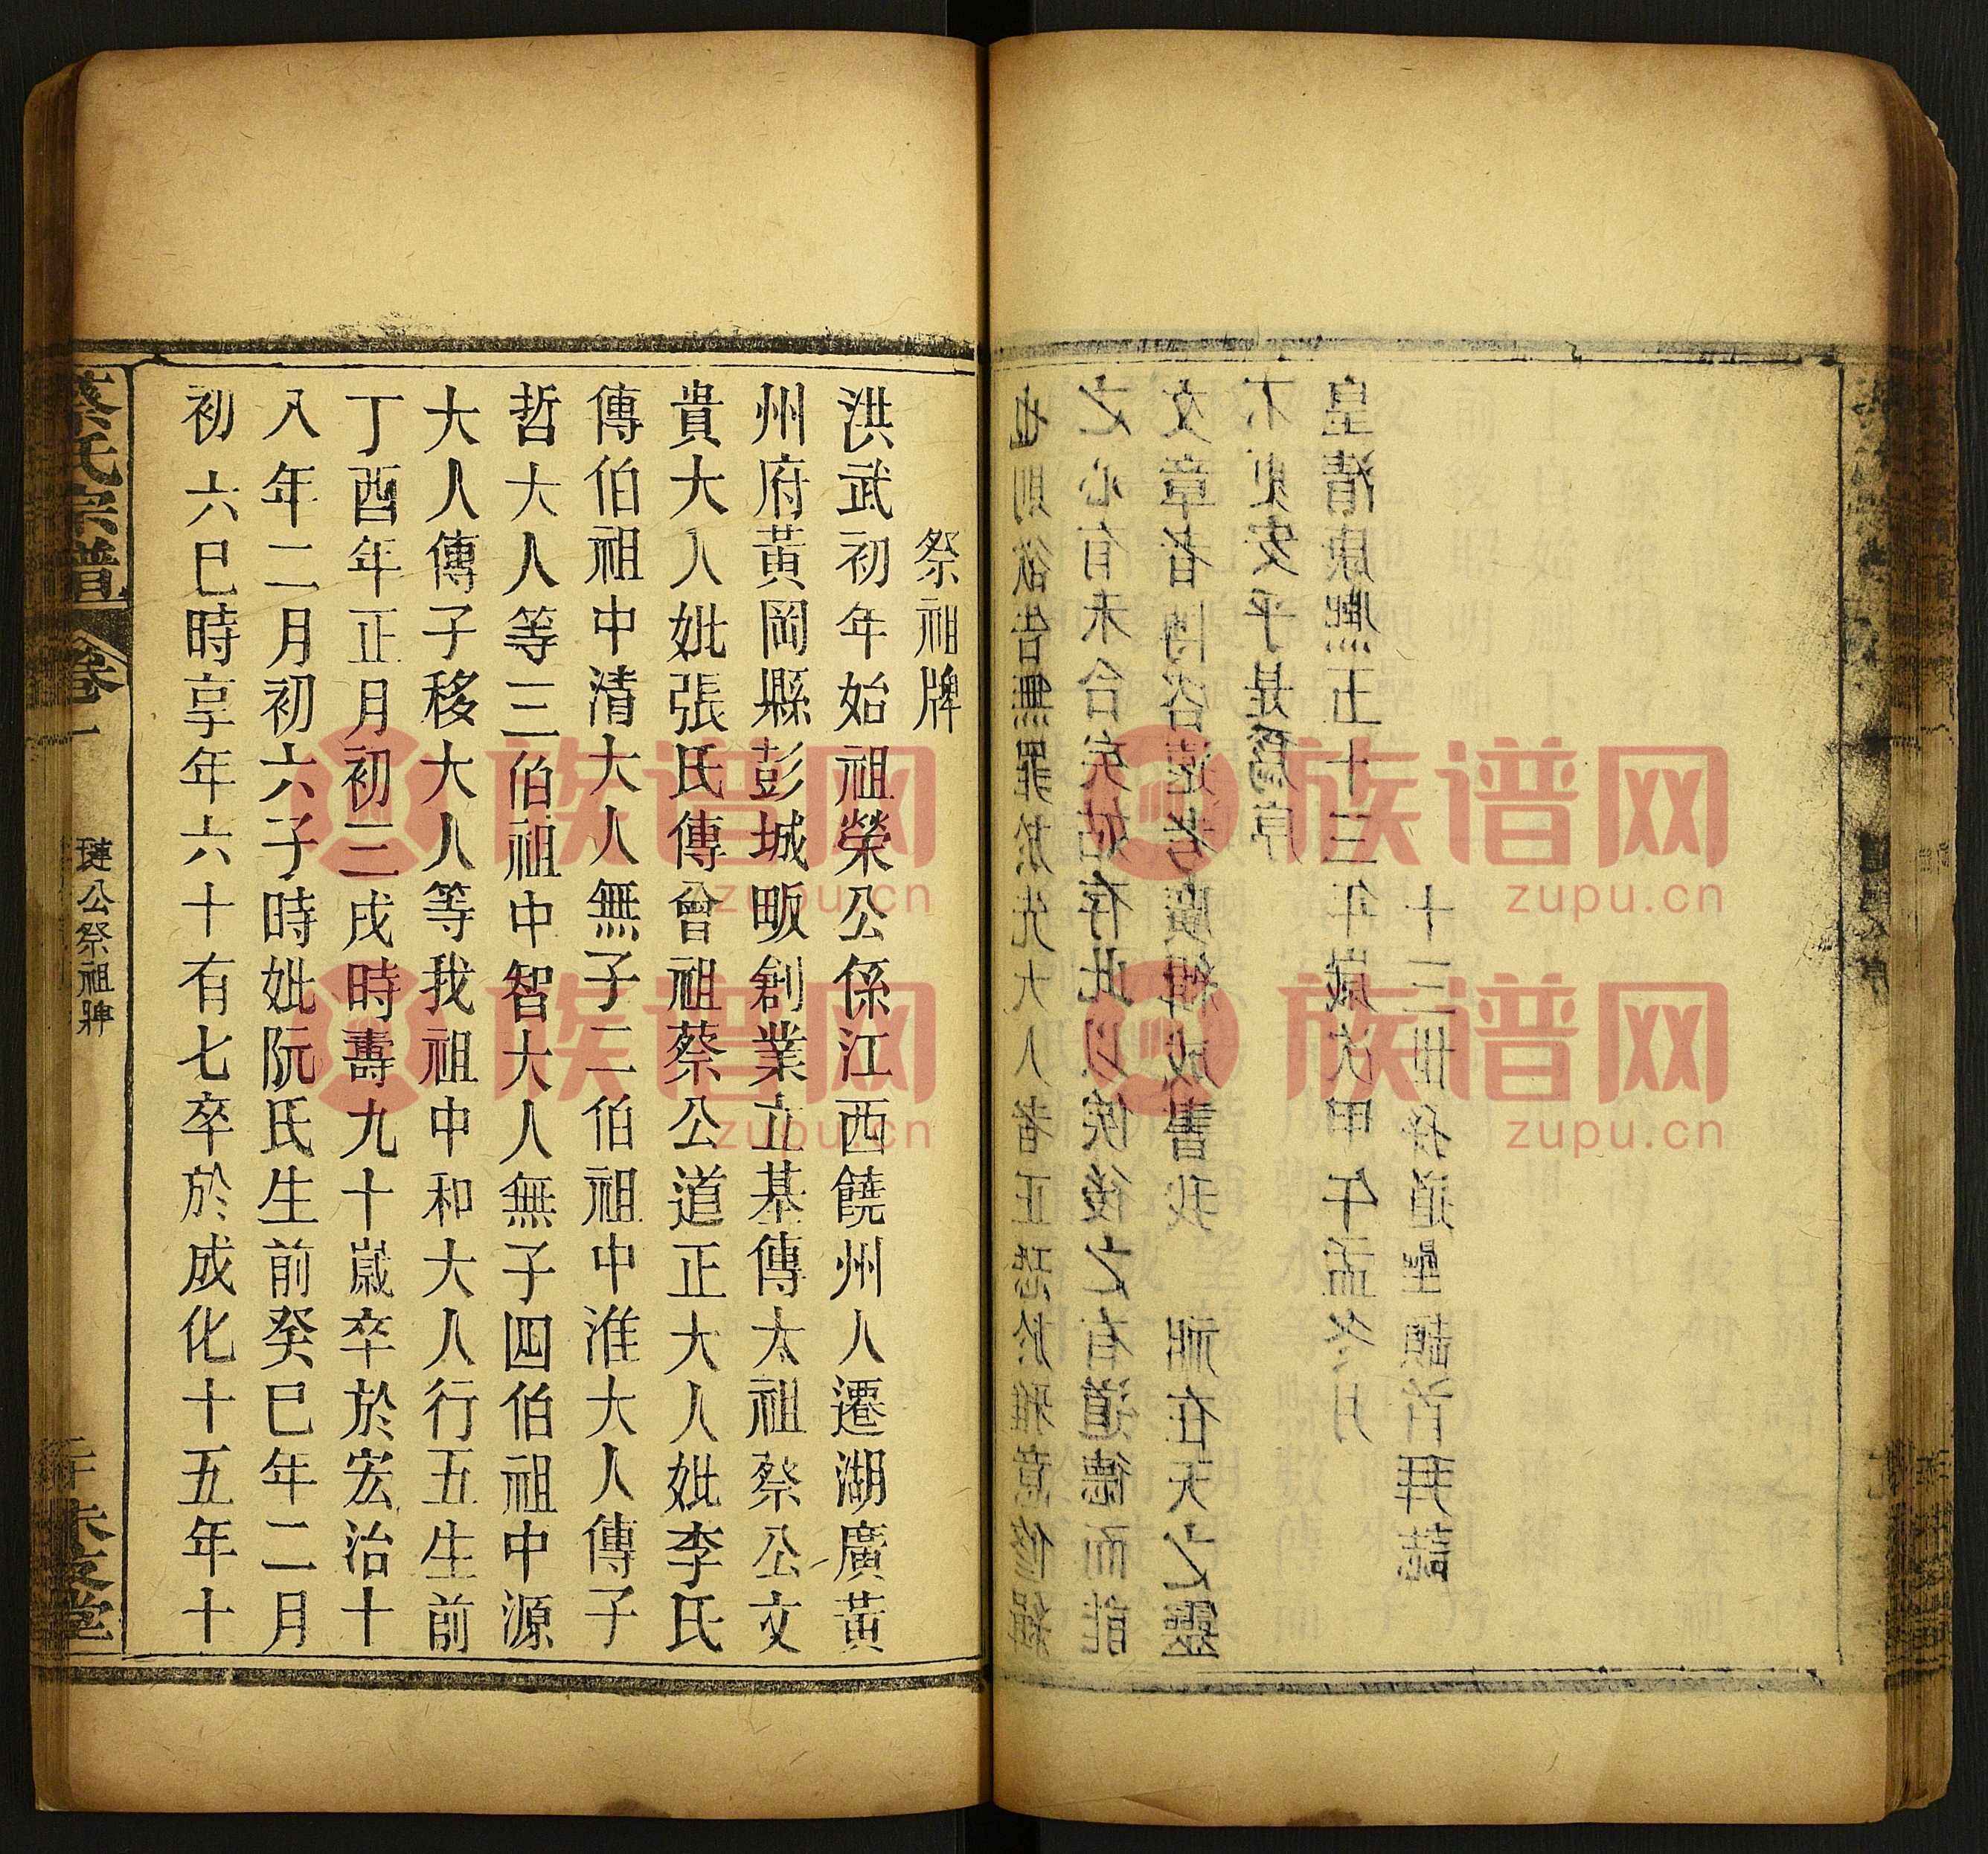 祭祖牌
洪武初年始祖榮公係江西饒州人遷湖廣黃
州府黃岡縣彭城畈創業立基傳太祖祭公文
貴大人妣張氏傳曾祖蔡公道正大人妣李氏
傳伯祖中清大人無子二伯祖中淮大人傳子
哲大人等三伯祖中智大人無子四伯祖中源
大人傳子移大人等我祖中和大人行五生前
丁酉年正月初三戌時壽九十歲卒於宏治十
八年二月初六子時妣阮氏生前癸巳年二月
初六巳時享年六十有七卒於成化十五年十
蔡氏宗譜
卷一
璉公祭祖牌
也則欲告無罪於先大人者正恐於雅意修緝
之心有未合矣姑存此以俟後之有道德而能
文章者博咨遠考廣緝成書我 祖在天之靈
不更安乎是爲序
皇清康熙五十三年歲次甲午孟冬月
十三世孫道壘頓首拜誌
族谱网
zupu.cn
族谱网
zupu.cn
族谱网
zupu.cn
族谱网
zupu.cn